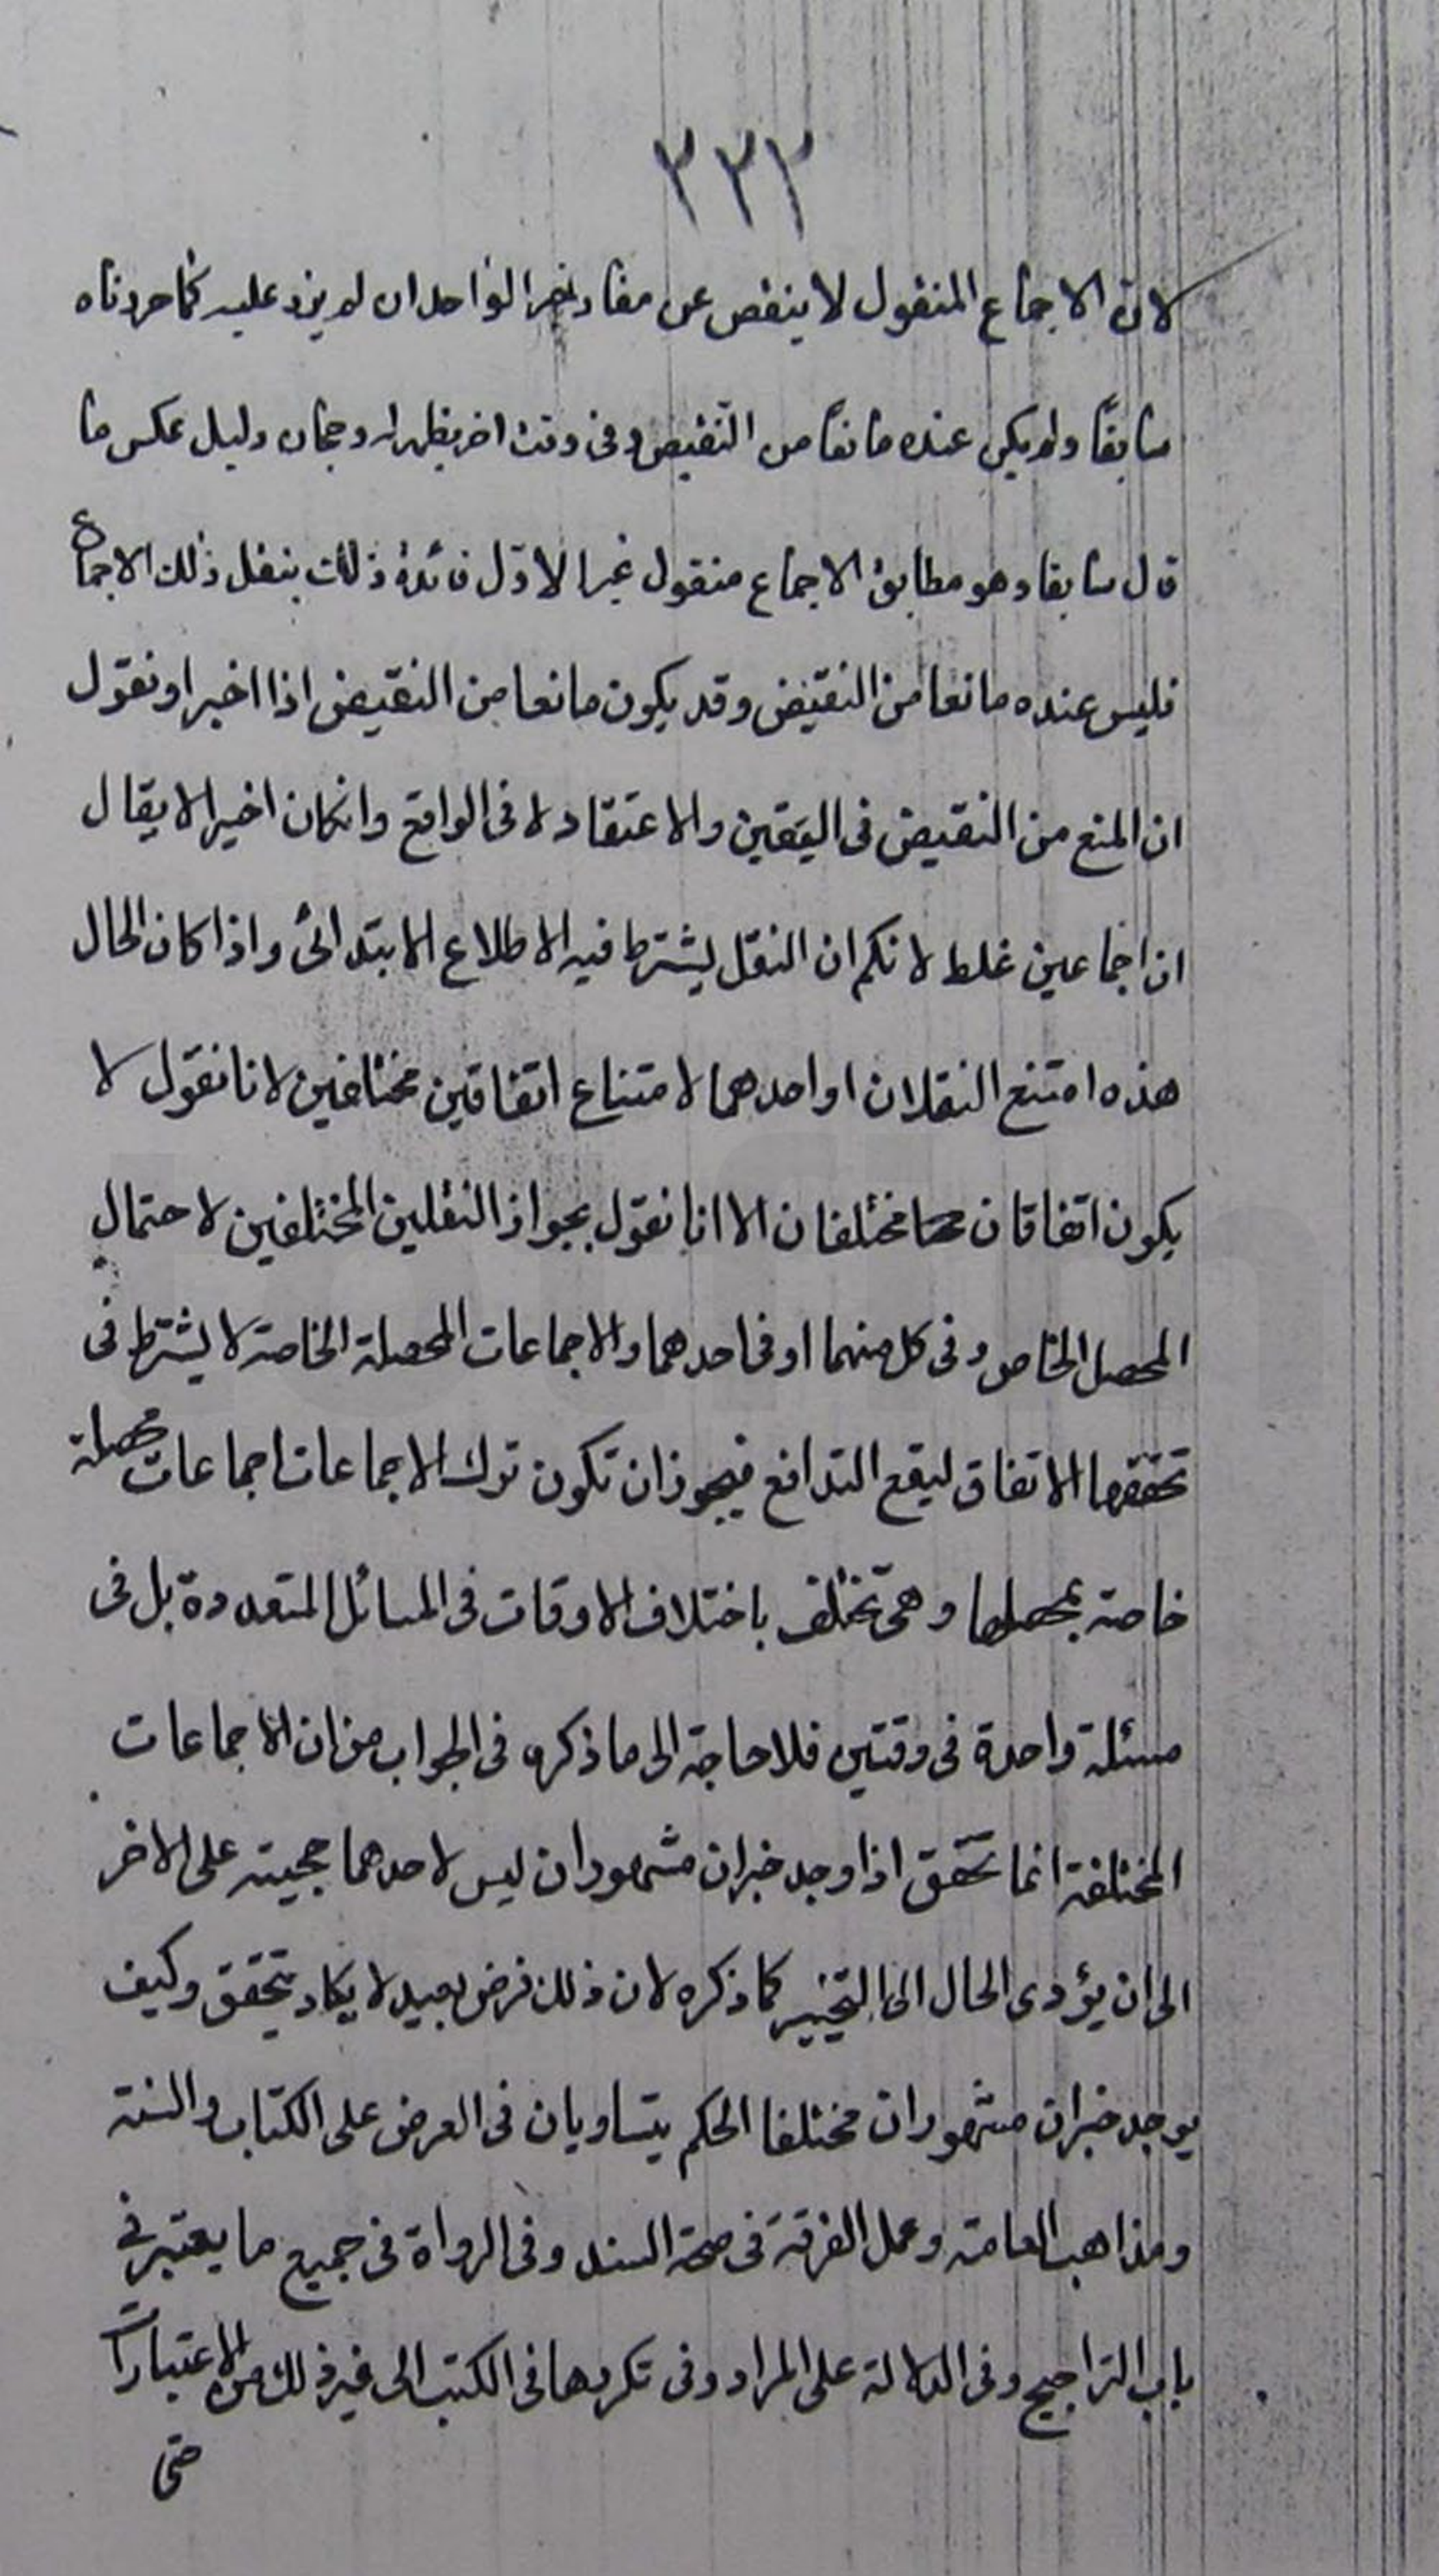 ٣٣٢
لان الاجماع المنقول لا ينقص عن مفاد خبر الواحد ان لم يزد عليه كما حررناه
سابقًا ولم يكن عنده مانعًا من النقيض وفى وقت اخر يظهر له رجحان دليل عكس ما
قال سابقا وهو مطابق الاجماع منقول غير الاوّل فائدة ذلك بنقل ذلك الاجماع
فليس عنده مانعا من النقيض وقد يكون مانعا من النقيض اذا اخبر او نقول
ان المنع من النقيض فى اليقين والاعتقاد لا فى الواقع وانكان اخيرا لا يقال
ان اجماعين غلط لانكم ان النقل يشترط فيه الاطلاع الابتدائى واذا كان الحال
هذه امتنع النقلان او احدهما لامتناع اتفاقين مختلفين لانا نقول لا
يكون اتفاقان مختلفان الا انا نقول بجواز النقلين المختلفين لاحتمال
المحصل الخاص وفى كل منهما او فى احدهما والاجماعات المحصلة الخاصة لا يشترط فى
تحققها الاتفاق ليقع التدافع فيجوز ان تكون ترك الاجماعات اجماعات محصلة
خاصة بمحصلها وهى تختلف باختلاف الاوقات فى المسائل المتعددة بل فى
مسئلة واحدة فى وقتين فلا حاجة الى ما ذكره فى الجواب من ان الاجماعات
المختلفة انما تتحقق اذا وجد خبران مشهوران ليس لاحدهما حجيته على الاخر
الى ان يؤدى الحال الى التخيير كما ذكره لان ذلك فرض بعيد لا يكاد يتحقق وكيف
يوجد خبران مشهوران مختلفا الحكم يتساويان فى العرض على الكتاب والسنة
ومذاهب العامة وعمل الفرقة فى صحة السند وفى الرواة فى جميع ما يعتبر فى
باب التراجيح وفى الدلالة على المراد وفى تكررها فى الكتب الى غير ذلك من الاعتبارات
حتى